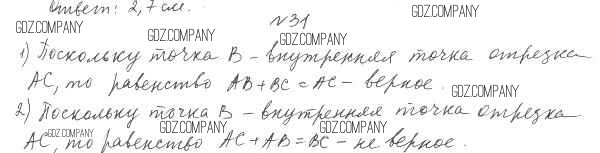 Ответ: 2,7 см.
GDZ.COMPANY
GDZ.COMPANY
№31
GDZ.COMPANY
GDZ.COMPANY
1) Поскольку точка B - внутренняя точка отрезка
AC, то равенство AB+BC=AC - верное.
GDZ.COMPANY
2) Поскольку точка B - внутренняя точка отрезка
GDZ.COMPANY
GDZ.COMPANY
GDZ.COMPANY
AC, то равенство AC+AB=BC - не верное.
GDZ.COMPANY